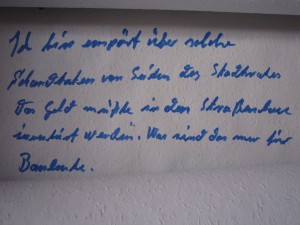 Ich bin empört über solche
Schandtaten von Seiten des Stadtrates
Das Geld müßte in den Straßenbau
investiert werden. Was sind das nur für
Banausen.